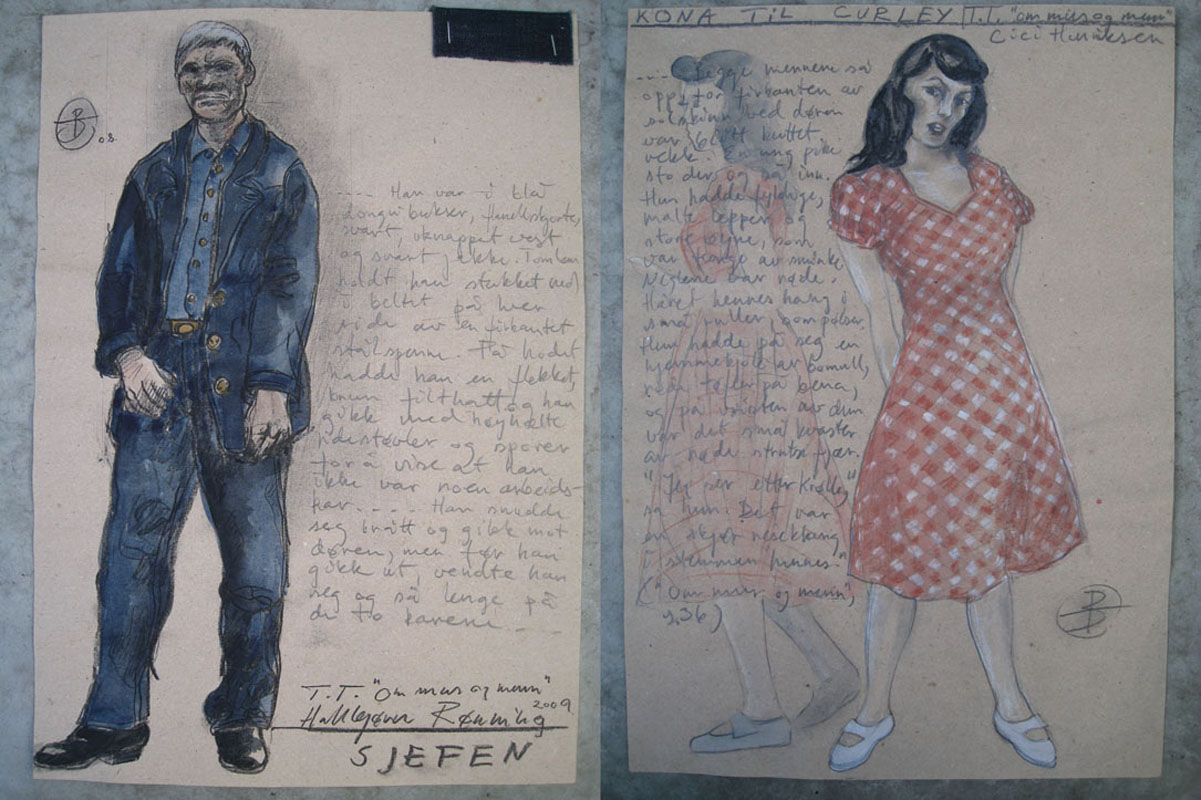 B
08.
---- Han var i blå
dongri bukser, flanellskjorte,
svart, uknappet vest
og svart jakke. Tomlen
holdt han stukket ned
i beltet på hver
side av en firkantet
stålspenne. På hodet
hadde han en flekket,
brun filthatt og han
gikk med høyhælte
ridestøvler og sporer
for å vise at han
ikke var noen arbeids-
kar. --- Han snudde
seg brått og gikk mot
døren, men før han
gikk ut, vendte han
seg og så lenge på
de to karene ---
T.T. "Om mus og menn"
2009
Rønning
SJEFEN
KONA TIL CURLEY T.T. "om mus og menn"
Cici Henriksen
---- Begge mennene så
opp, for firkanten av
solskinn ved døren
var blitt kuttet
vekk. En ung pike
sto der og så inn.
Hun hadde fyldige,
malte lepper og
store øyne, som
var tunge av sminke.
Neglene var røde.
Håret hennes hang i
små ruller, som pølser.
Hun hadde på seg en
hjemmekjole av bomull,
røde tøfler på bena,
og på vristen av dem
var det små kvaster
av røde strutsefjær.
"Jeg ser etter Krølle",
sa hun. Det var
en skjør neseklang
i stemmen hennes."
("Om mus og menn",
s.36)
B